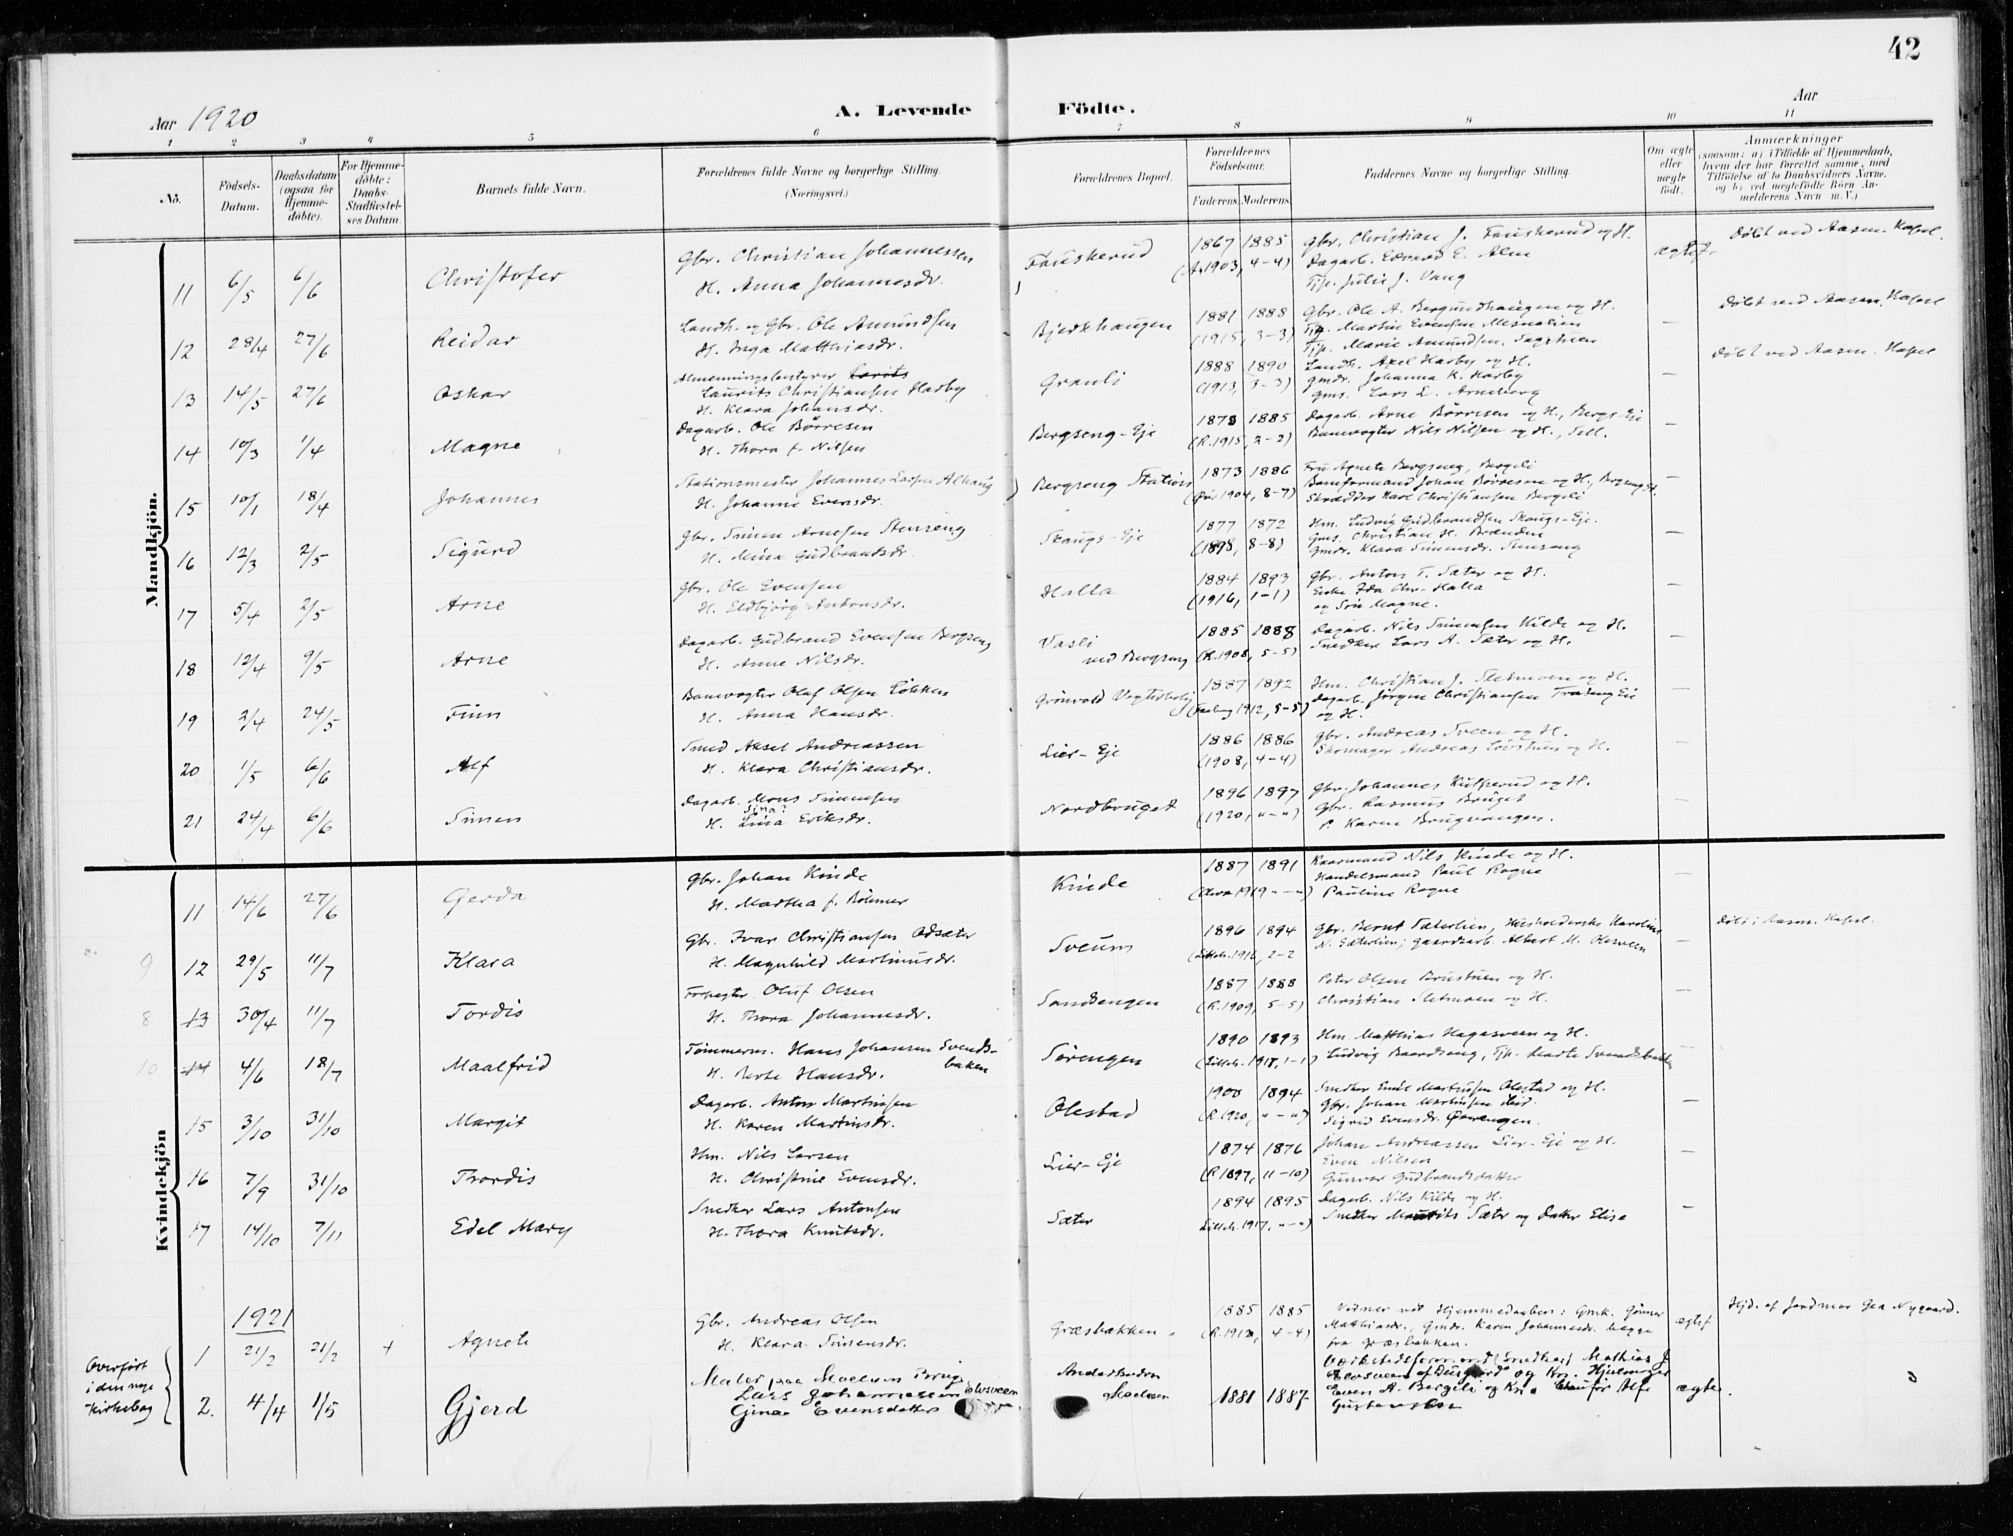 42
Aar 1920
A. Levende Födte.
Aar
1 2 3 4 5 6 7 8 9 10 11
No.
Födsels-Datum.
Daabsdatum (ogsaa for Hjemme-döbte).
For Hjemme-döbte: Daabs-Stadfæstel-ses Datum.
Barnets fulde Navn.
Forældrenes fulde Navne og borgerlige Stilling. (Næringsvei.)
Forældrenes Bopæl.
Forældrenes Födselsaar.
Faderens. Moderens.
Faddernes Navne og borgerlige Stilling.
Om ægte eller uægte födt.
Anmærkninger
(saasom: a) i Tilfælde af Hjemmedaab,
hvem der har forrettet samme, med
Tilföielse af to Daabsvidners Navne,
og b) ved uægtefödte Börn An-
melderens Navn m. V.)
Mandkjön.
11 6/5 6/6 Christofer
Gbr. Christian Johannessen
H. Anna Johannesdr.
Fauskerud
1867 1885
(A. 1903, 4-4)
Gbr. Christian J. Fauskerud og H.
Dagarb. Edvard E. Alm
Tjp. Julie J. Vang
ægtef.
Döbt ved Aasm. Kapel.
12 28/4 27/6 Reidar
Landh. og Gbr. Ole Amundsen
H. Inga Matthiasdr.
Bjerkhaugen
1881 1888
(1915, 3-3)
Gbr. Ole A. Bergundhaugen og H.
Tjp. Martin Evensen Mesnalien
Tjp. Marie Amundsen
—
Döbt ved Aasm. Kapel
13 14/5 27/6 Oskar
Almenningsbestyrer
Laurits Christiansen Harby
H. Klara Johansdr.
Granli
1888 1890
(1913, 3-3)
Landh. Axel Harby og H.
Gmdr. Johanna K. Harby
Gms. Lars L. Arneberg
—
Döbt ved Aasm. Kapel
14 10/3 1/4 Magne
Dagarb. Ole Börresen
H. Thora f. Nilsen
Bergseng-Eje
1878 1885
(R. 1915, 2-2)
Dagarb. Arne Börresen og H., Bergs-Eje
Banevogter Nils Nilsen og H.
—
15 10/1 18/4 Johannes
Stationsmester Johannes Larsen Alhaug
H. Johanne Evensdr.
Bergseng Station
1873 1886
1904, 8-7)
Fru Agnete Bergseng, Bergeli
Baneformand Johan Börresen og H.
Skrædder Karl Christiansen Bergeli
—
16 12/3 2/5 Sigurd
Gbr. Simen Arnesen Stenseng
H. Mina Gudbrandsdr.
Skaugs-Eje
1877 1872
(1898, 8-8)
Hm. Ludvig Gudbrandsen Skaugs-Eje.
Gms. Christian H. Brænden
Gmdr. Klara Simensdr. Stenseng
—
17 5/4 2/5 Arne
Gbr. Ole Evensen
H. Eldbjörg Antonsdr.
Halla
1884 1893
(1916, 1-1)
Gbr. Anton T. Sæter og H.
Enke Ida Chr. Halla
og Sön Magne.
—
18 12/4 9/5 Arne
Dagarb. Gudbrand Evensen Bergseng
H. Anne Nilsdr.
Vasli
ved Bergseng
1885 1888
(R. 1908, 5-5)
Dagarb. Nils Simensen Kilde og H.
Snedker Lars A. Sæter og H.
—
19 2/4 24/5 Finn
Banevogter Olaf Olsen Løkken
H. Anna Hansdr.
Grönvold Vogterbolig
1887 1892
1912, 5-5)
Hm. Christian J. Sletmoen og H.
Dagarb. Jörgen Christiansen
og H.
—
20 1/5 6/6 Alf
Smed Aksel Andreassen
H. Klara Christiansdr.
Lier-Eje
1886 1886
(1908, 4-4)
Gbr. Andreas Sveen og H.
Skomager Andreas og H.
—
21 24/4 6/6 Simen
Dagarb. Mons Simensen
H. Lina Eriksdr.
Nordbruget
1896 1897
(1920, "-")
Gbr. Johannes og H.
Gbr. Rasmus Bruget
P. Karen Brugvangen.
—
Kvindekjön
11 14/6 27/6 Gerda
Gbr. Johan Kinde
H. Martha f. Böhmer
Kinde
1887 1891
1919
Kaarmand Nils Kinde og H.
Handelsmand Paul Rogne
Pauline Rogne
—
9 12 29/5 11/7 Klara
Gbr. Ivar Christiansen Odsæter
H. Magnhild Martinusdr.
Sveum
1896 1894
(Lilleh. 1916, 2-2
Gbr. Bernt Sæterlien, Husholderske Karoline
N. Sæterlien, Gaardsarb. Albert M. Olesveen
—
Döbt i Aasm. Kapel.
8 13 30/4 11/7 Tordis
Forpagter Oluf Olsen
H. Thora Johannesdr.
Sandsengen
1887 1888
(R. 1909, 5-5)
Peter Olsen Brustuen og H.
Christian Sletmoen og H.
—
10 14 4/6 18/7 Maalfrid
Tömmerm. Hans Johansen Svends-
bakken
H. Berte Hansdr.
Sörengen
1890 1893
(Lilleh. 1918, 1-1)
Hm. Matthias Hagasveen og H.
Ludvig Baardseng, Tjp. Marte Svendsbakken
—
15 3/10 31/10 Margit
Dagarb. Anton Martinsen
H. Karen Martinsdr.
Olestad
1900 1894
(R. 1920, "-")
Snedker Emil Martinsen Olestad og H.
Gbr. Johan Martinsen ibid.
Sigrid Evensdr.
—
16 7/9 31/10 Thordis
Hm. Nils Larsen
H. Christine Evensdr.
Lier-Eje
1874 1876
(R. 1897, 11-10)
Johan Andreassen Lier-Eje og H.
Even Nilsen
Gunvor Gudbrandsdatter
—
17 14/10 7/11 Edel Mary
Snedker Lars Antonsen
H. Thora Knutsdr.
Sæter
1894 1895
Lilleh. 1917, "-")
Dagarb. Nils Kilde og H.
Snedker Maurits Sæter og Datter Elise
—
1921
1 21/2 21/2 + Agnete
Gbr. Andreas Olsen
H. Klara Simensdr.
Græsbakken
1885 1885
(R. 1912, 4-4)
Vidner ved Hjemmedaaben: Gmk. Gunnar
Matthiasdr., Gmdr. Karen Johannesdr. begge
fra Græsbakken.
ægtef
Hjd. af Jordmor Gea Nygaard.
Overført
i den nye
Kirkebog
2. 4/4 1/5 Gjerd
Maler paa Moelven Brug
Lars Johannessen Elvsveen
Gina Evensdatter
Anderbuden
Moelven
1881 1887
Værkstedsformand (Snedker) Mathias J.
Even A. Bergeli og Kn. Chaufør Alf
Gustavsen
ægte.